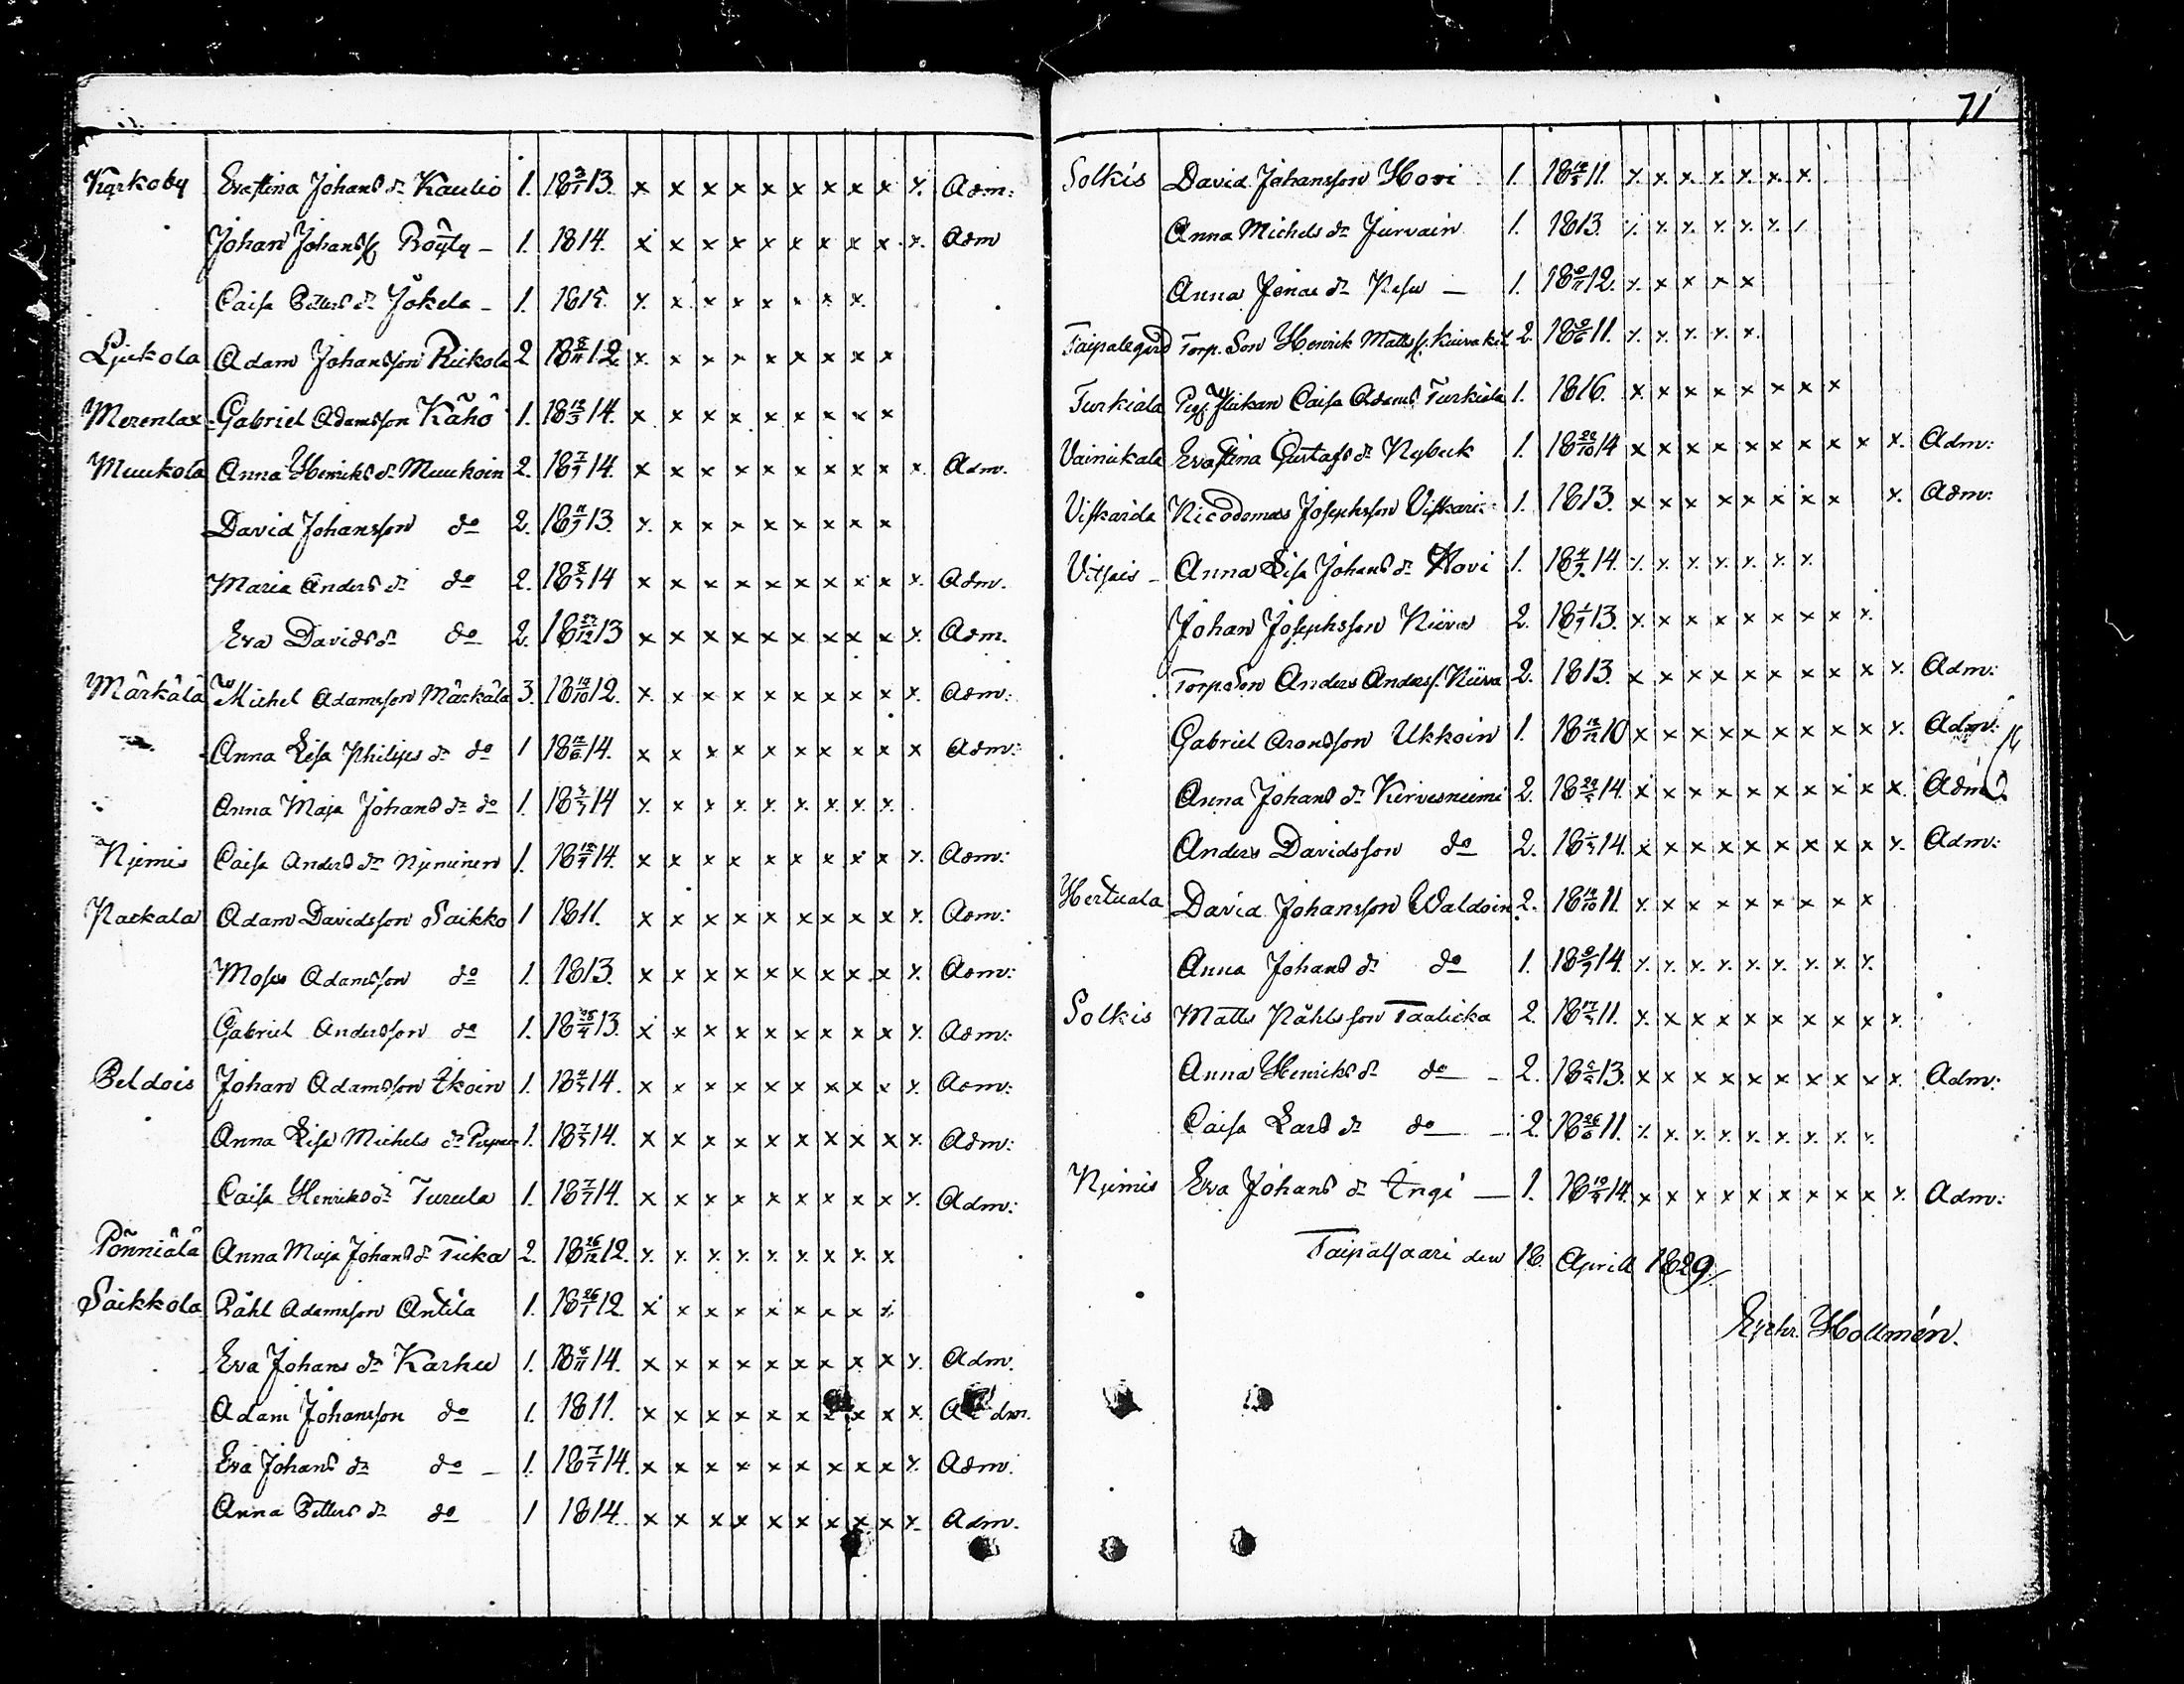 Kyrkoby Evastina Johansdr Kaulio 1. 18 3/1 13. x x x x x x x x x x. Adm:
Johan Johanss Röyty – 1. 1814. x x x x x x x x x. x. Adm
Caisa Petters dr Jokela – 1. 1815. x. x x x x x x x.
Ljukola Adam Johansson Rickola 2 18 8/11 12. x. x x x x x x x x
Merenlax Gabriel Adamsson Kähö 1. 18 12/3 14. x x x x x x x x x
Muukola Anna Henriksdr Muukoin 2. 18 7/7 14. x x x x x x x x x x. Adm.
David Johansson do 2. 18 11/7 13. x. x x x x x x x x
Maria Anders dr do 2. 18 8/7 14 x x x x x x x x x x. Adm.
Eva Davidsdr do 2. 18 27/12 13 x x x x x x x x x x. Adm.
Märkälä Michel Adamsson Märkälä 3. 18 12/10 12. x. x x x x x x x x x. Adm:
Anna Lisa Philips dr do 1 18 12/6 14. x x x x x x x x x x Adm:
Anna Maja Johans dr do 1. 18 14 x. x x x. x. x. x. x. x.
Njemis Caisa Anders dr Njeminen 1. 18 14. x x x x x x x x x x. Adm:
Packala Adam Davidsson Saikko 1 1811. x x x x x x x x x x. Adm:
Moses Adamsson do 1. 1813. x x x x x x x x. x x. Adm:
Gabriel Andersson do 1. 18 13. x x x x x x x x x x. Adm:
Peldois Johan Adamsson Ikoin 1. 18 14. x x x x x x x x x x. Adm:
Anna Lisa Michels dr 1. 18 7/5 14. x x x x x x x x x x. Adm:
Caisa Henriks dr Turula 1. 18 7/7 14. x x x x x x x x x x. Adm:
Pönniälä Anna Maja Johans dr Ticka 2. 18 26/12 12. x. x. x. x. x. x. x. x. x
Saikkola Påhl Adamsson Antila 1. 18 26/1 12 x x x x x x x x x.
Eva Johans dr Karhu 1. 18 6/11 14. x x x x x x x x x x. Adm.
Adam Johansson do 1. 1811. x x x x x x x x x x. Adm.
Eva Johans dr do – 1. 18 7/7 14. x x x x x x x x x x. Adm.
Anna Petters dr do 1 1814. x x x x x x x x x x. Adm.
71
Solkis David Johansson Hovi 1. 18 11. x. x x. x. x. x. x.
Anna Michels dr Jurvain 1. 1813. x. x. x. x. x. x. x
Anna Jonae dr – 1. 18 12. x. x x x x
Taipalegård Torp. Son Henrik Mattss. 2. 18 9/6 11. x. x. x. x. x.
Turkiala Caisa Adams Turkiala 1. 1816. x x x x x x x x
Vainikala Evastina Gustafsdr Nybeck 1. 18 22/10 14 x x x x x x x x x x. Adm:
Viskarila Nicodemus Josephsson Viskari 1. 1813. x x x x x x x x x. Adm:
Vitsais – Anna Lisa Johans dr Hovi 1. 18 14. x. x. x. x. x. x. x.
Johan Josephsson Niiva 2. 18 13. x. x x x x x x x x.
Torp. Son Anders Anderss. Niiva 2. 1813. x x x x x x x x x x. Adm:
Gabriel Aronsson Ukkoin 1. 18 12/12 10 x x x x x x x x x x. Adm:
Anna Johans dr Kirvesniemi 2. 18 14. x x x x x x x x x x. Adm
Anders Davidsson do 2. 18 14. x x x x x x x x x x. Adm:
Hertuala David Johansson Waldoin 2. 18 19/10 11. x. x x x x x x x x
Anna Johans dr do 1. 18 9/7 14. x. x. x. x. x. x. x. x. x.
Solkis Matts Påhlsson Taalicka 2. 18 11. x. x x x x x x x x x.
Anna Henriks dr do – 2. 18 13. x x x x x x x x x x. Adm:
Caisa Lars dr do – 2. 18 26/6 11. x. x. x. x. x. x. x. x. x.
Njemis Eva Johans dr Ingi – 1. 18 14. x x x x x x x x x x. Adm:
Taipalsaari den 18. Aprill 1829.
Ephr. Hollmén.